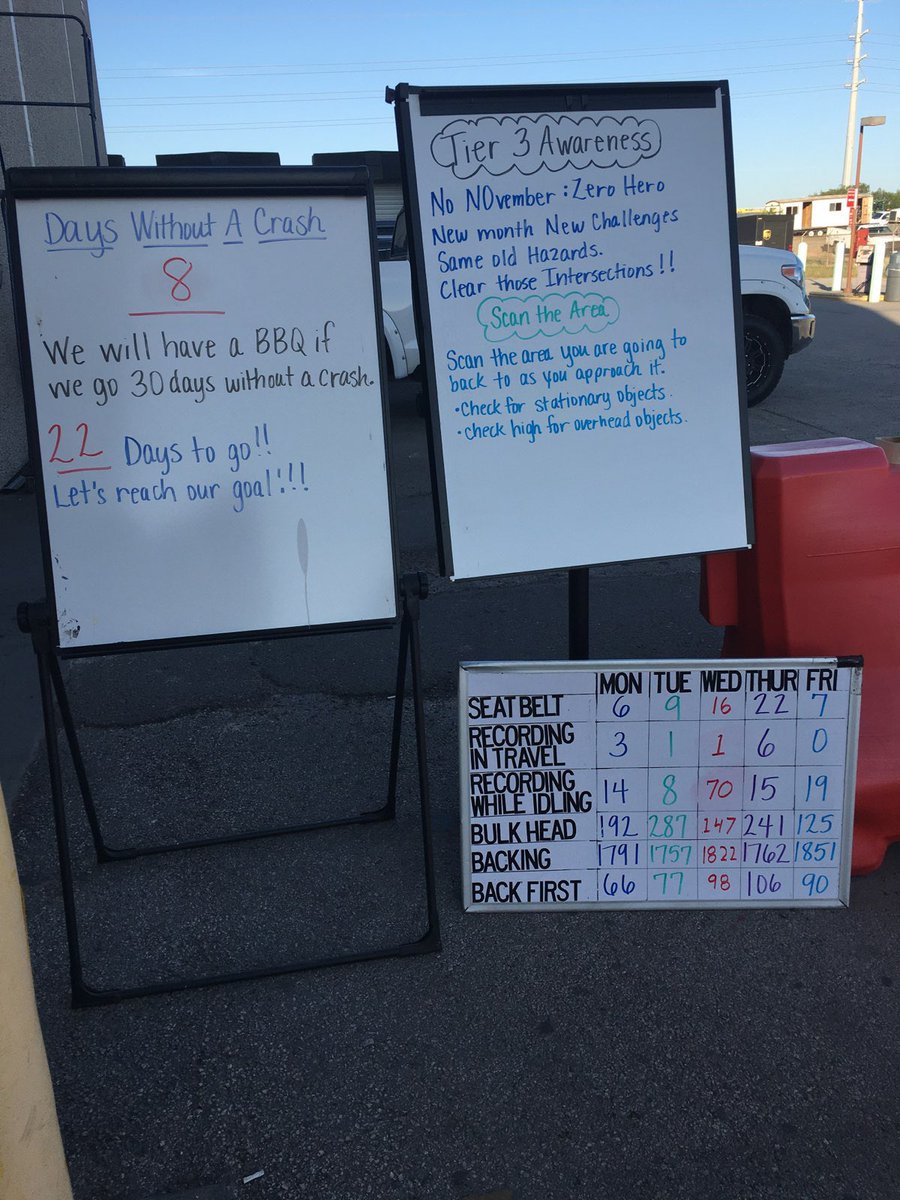 Days Without A Crash
8
We will have a BBQ if
we go 30 days without a crash.
22 Days to go!!
Let's reach our goal!!!
Tier 3 Awareness
No NOvember: Zero Hero
New month New Challenges
Same old Hazards.
Clear those Intersections!!
Scan the Area
Scan the area you are going to
back to as you approach it.
•Check for stationary objects.
•check high for overhead objects.
MON TUE WED THUR FRI
SEAT BELT 6 9 16 22 7
RECORDING
IN TRAVEL 3 1 1 6 0
RECORDING
WHILE IDLING 14 8 70 15 19
BULK HEAD 192 287 147 241 125
BACKING 1791 1757 1822 1762 1851
BACK FIRST 66 77 98 106 90